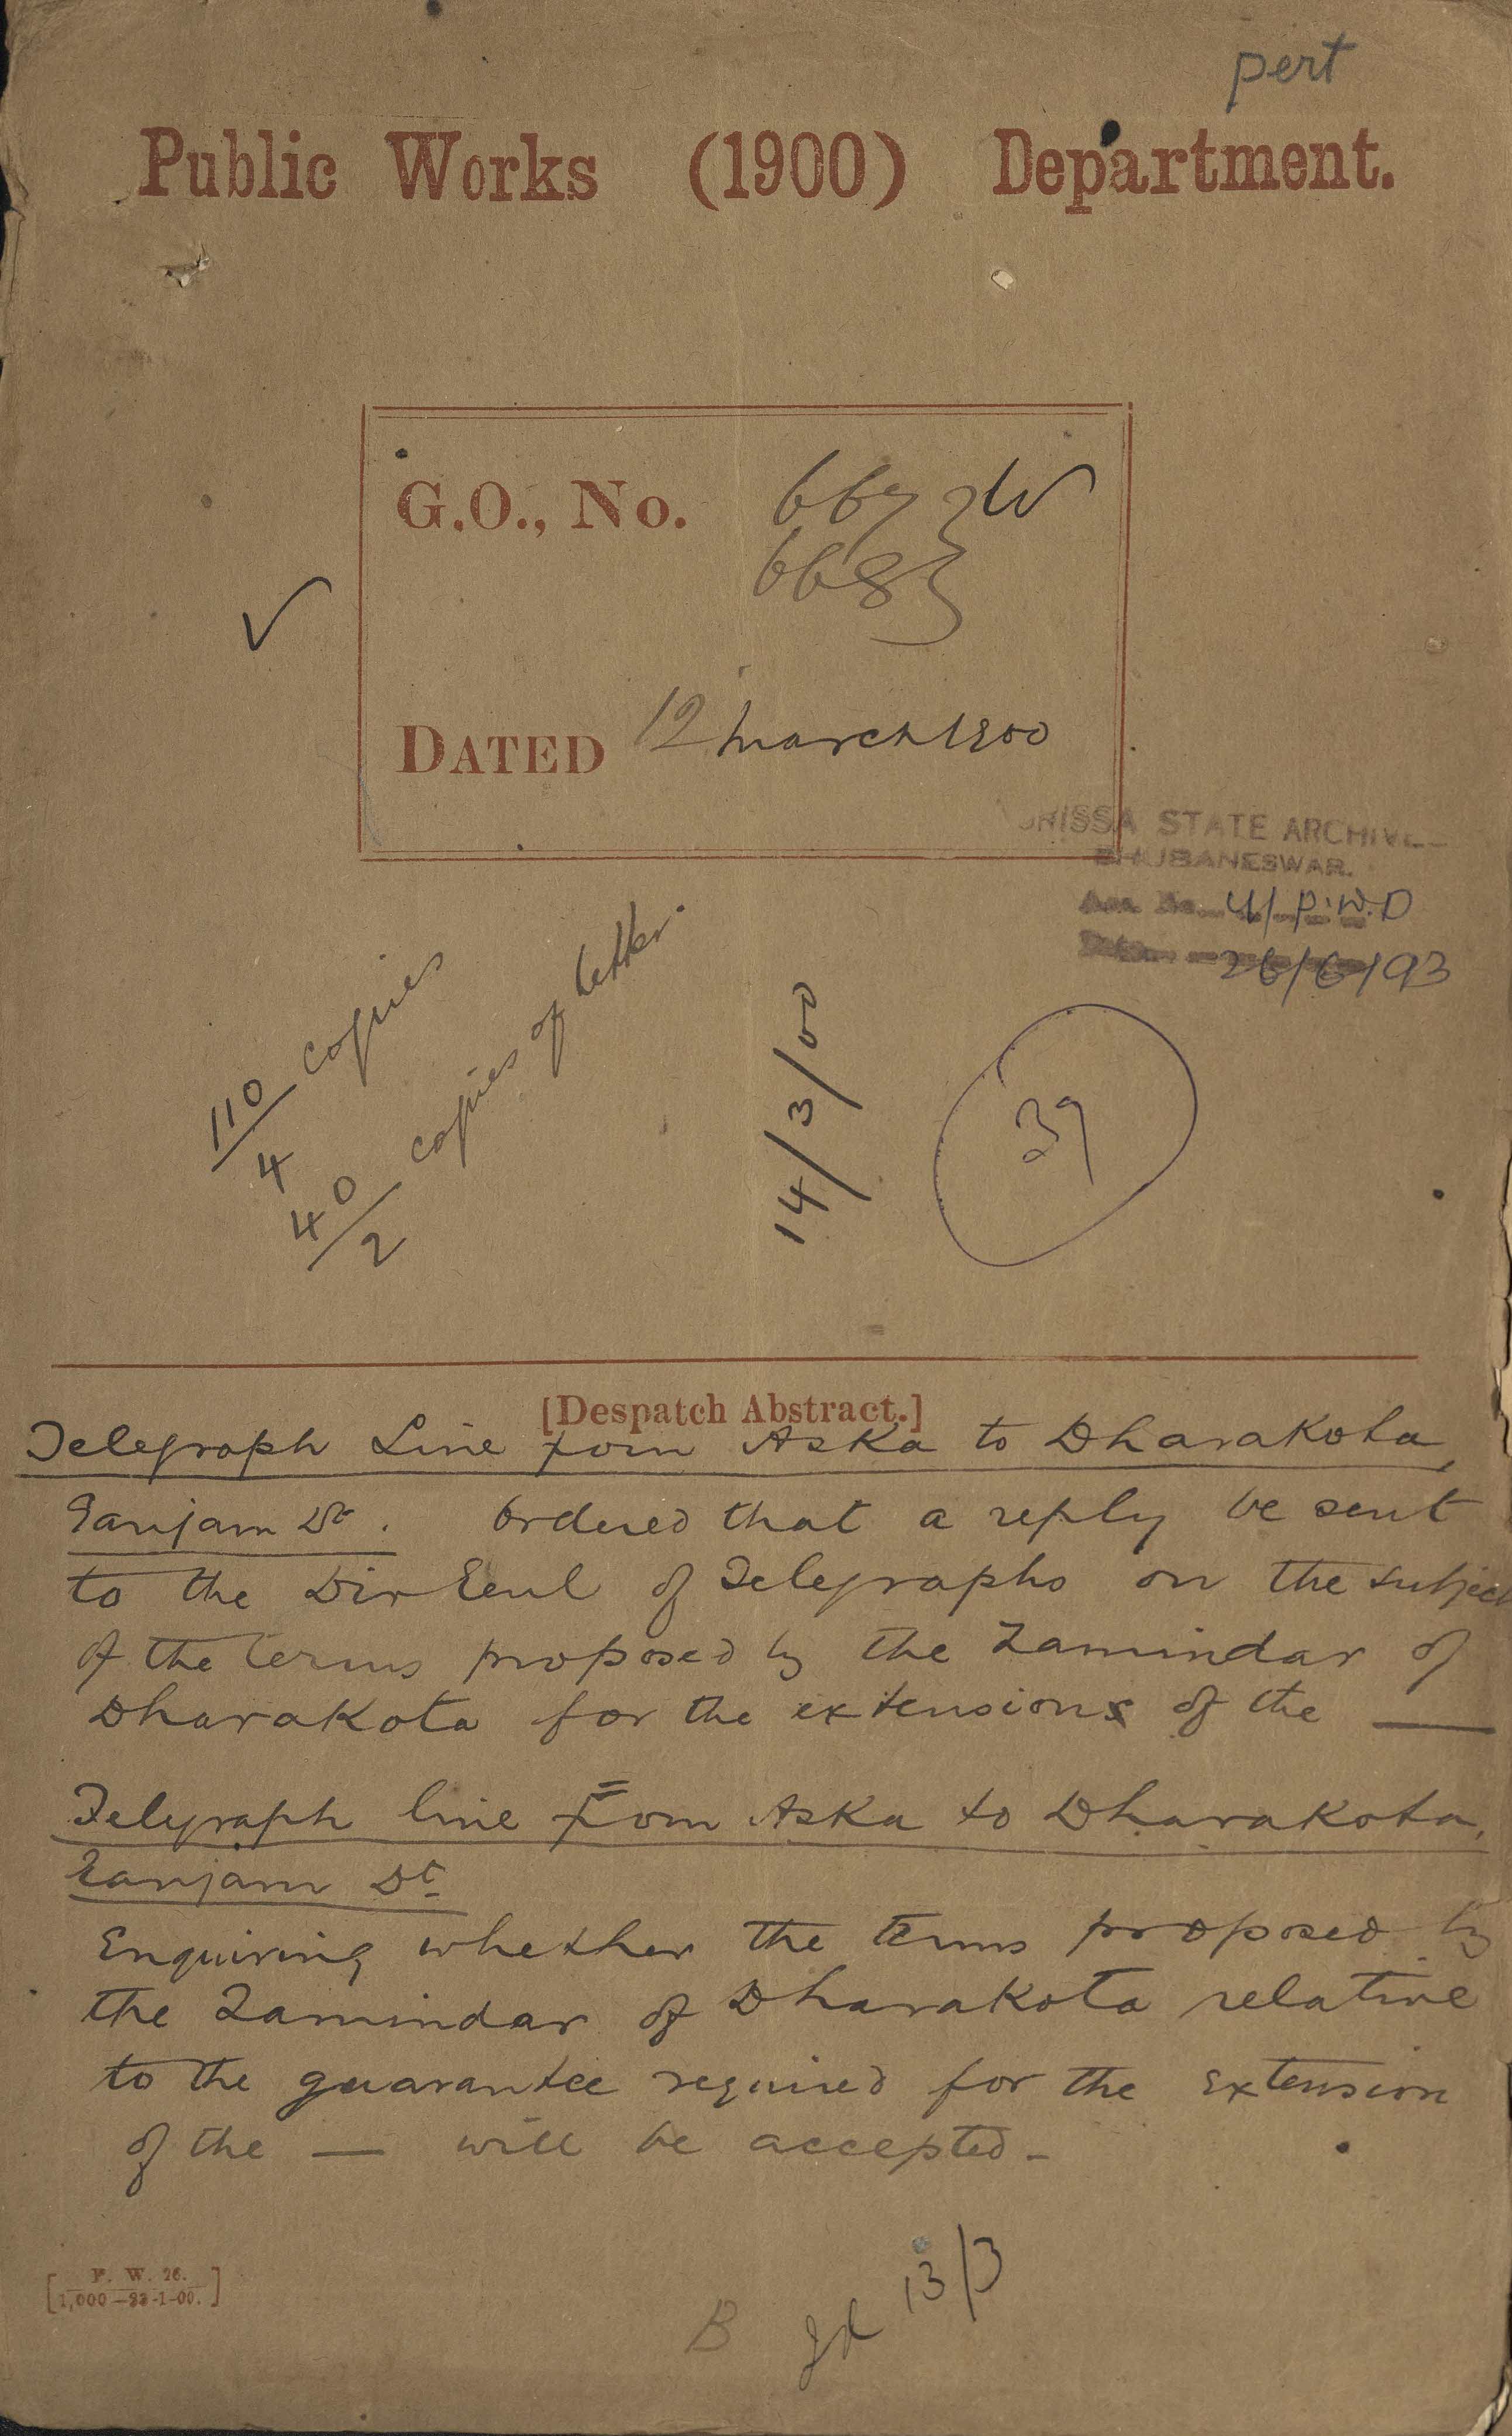 pert
Public Works (1900) Department.
G.O., No. 667 W
668
DATED 12 March 1900
ORISSA STATE ARCHIVES
BHUBANESWAR.
Acc. No. 41/P.W.D
Date 26/6/93
110/4 copies
40/2 copies of letter.
14/3/00
39
[Despatch Abstract.]
Telegraph Line from Aska to Dharakota,
Ganjam Dt. Ordered that a reply be sent
to the Dir Genl of Telegraphs on the subject
of the terms proposed by the Zamindar of
Dharakota for the extension of the —
Telegraph line from Aska to Dharakota,
Ganjam Dt.
Enquiring whether the terms proposed by
the Zamindar of Dharakota relative
to the guarantee required for the extension
of the — will be accepted –
P. W. 26.
1,000—23-1-00.
13/3
B